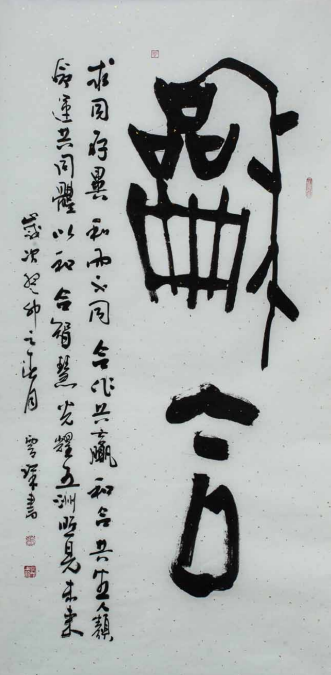 龢合
求同存異和而不同合作共贏和合共生人類
命運共同體以和合智慧光耀五洲照見未来
歲次癸卯之月書